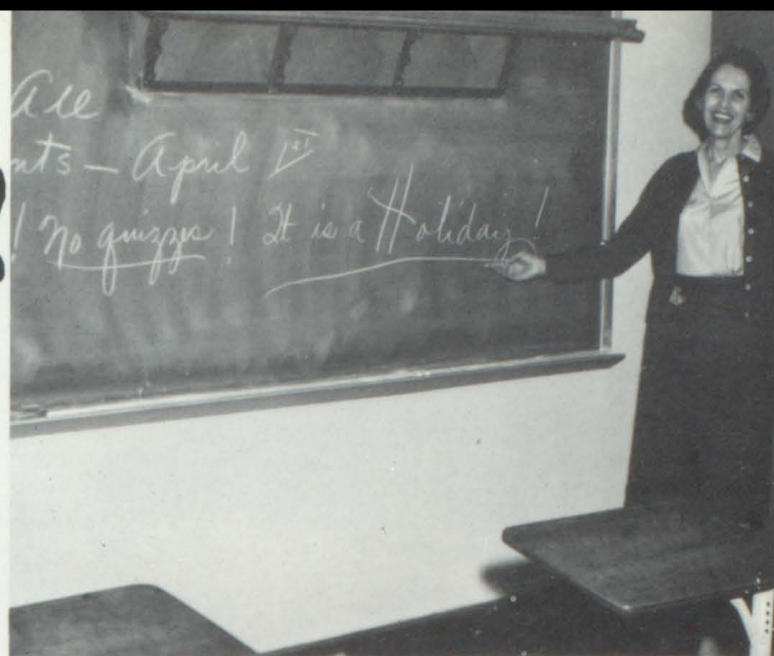 are
nts — April 1st
! No quizzes! It is a Holiday!